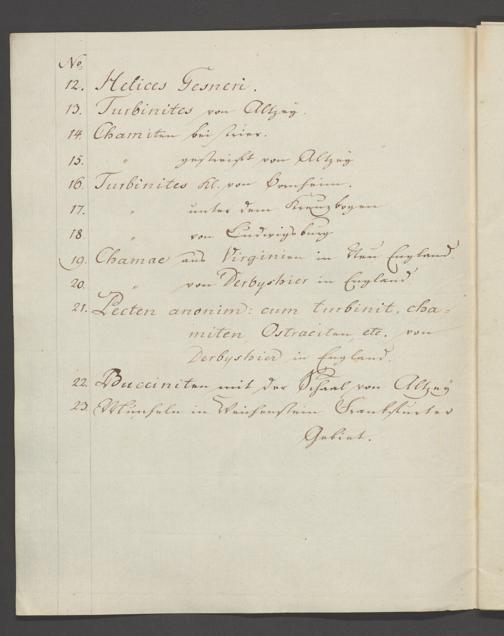 No
12. Helices Gesneri.
13. Turbinites von Altzey.
14. Chamiten bei Trier.
15. " gestreift von Altzey
16. Turbinites Kl. von Bornheim.
17. " unter dem Kreuzbogen
18. " von Ludwigsburg
19. Chamae aus Virginien in Neu England.
20. " von Derbyshier in England
21. Pecten anonim: cum turbinit. cha=
miten, Ostraciten, etc. von
Derbyshier in England.
22. Bucciniten mit der Schaal von Altzey
23. Muscheln in Frankfurter
Gebiet.